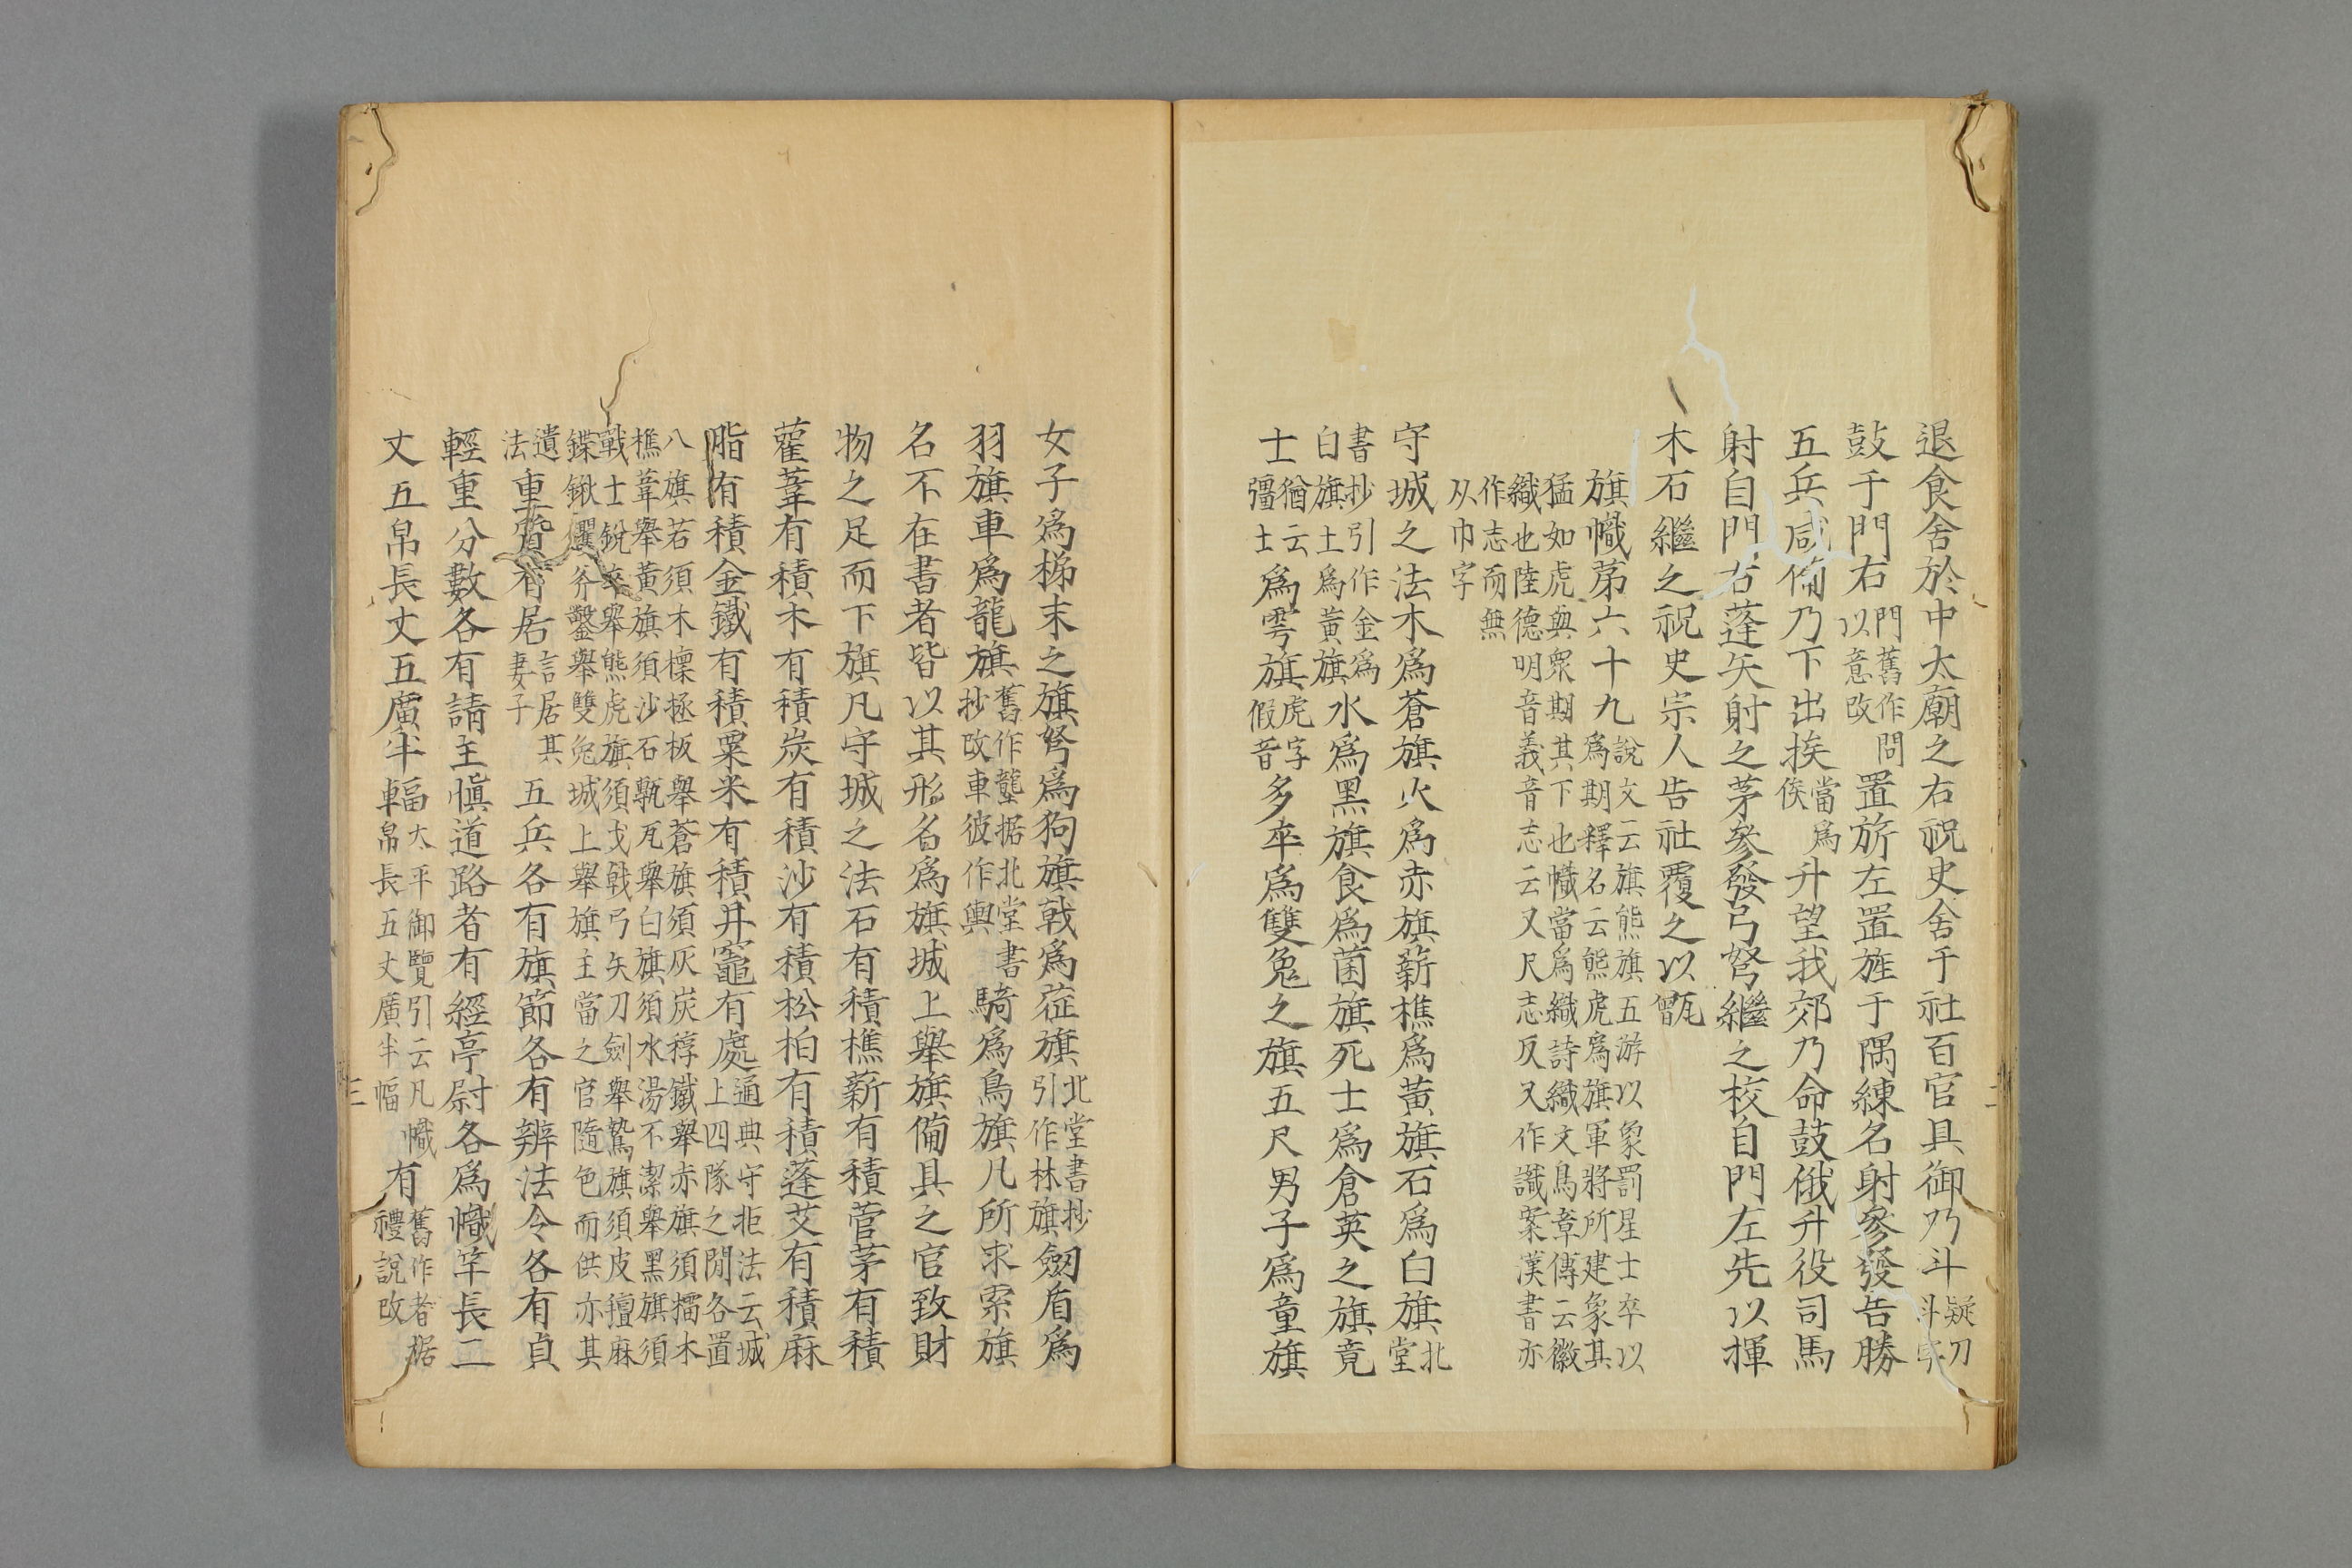 退食舍於中太廟之右祝史舍于社百官具御乃斗疑刀斗字
鼓于門右門舊作問以意改置旂左置旌于隅練名射參發告勝
五兵咸備乃下出挨當爲俟升望我郊乃命鼓俄升役司馬
射自門右蓬矢射之茅參發弓弩繼之校自門左先以揮
木石繼之祝史宗人告社覆之以甑
旗幟苐六十九說文云旗熊旗五游以象罰星士卒以爲期釋名云熊虎爲旗軍將所建象其
猛如虎與衆期其下也幟當爲織詩織文鳥章傳云徽織也陸德明音義音志云又尺志反又作識案漢書亦
作志而無从巾字
守城之法木爲蒼旗火爲赤旗薪樵爲黃旗石爲白旗北堂
書抄引作金爲白旗土爲黃旗水爲黑旗食爲菌旗死士爲倉英之旗竟
士猶云彊士爲雩旗虎字假音多卒爲雙兔之旗五尺男子爲童旗
女子爲梯末之旗弩爲狗旗戟爲䒾旗北堂書抄引作林旗劒盾爲
羽旗車爲龍旗舊作壟据北堂書抄改車彼作輿騎爲鳥旗凡所求索旗
名不在書者皆以其形名爲旗城上舉旗備具之官致財
物之足而下旗凡守城之法石有積樵薪有積菅茅有積
雚葦有積木有積炭有積沙有積松柏有積蓬艾有積麻
脂有積金鐵有積粟米有積井竈有處通典守拒法云城上四隊之閒各置
八旗若須木檁拯板舉蒼旗須灰炭稕鐵舉赤旗須擂木樵葦舉黃旗須沙石甎瓦舉白旗須水湯不潔舉黑旗須
戰士銳卒舉熊虎旗須戈戟弓矢刀劍舉鷙旗須皮氊麻鍱鍬钁斧鑿舉雙兔城上舉旗主當之官隨色而供亦其
遺法重質有居言居其妻子五兵各有旗節各有辨法令各有貞
輕重分數各有請主愼道路者有經亭尉各爲幟竿長二
丈五帛長丈五廣半幅太平御覽引云凡幟帛長五丈廣半幅有舊作者据禮說改
二
三